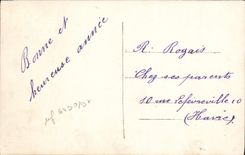 Bonne et
heureuse année
R. Rogais
Chez ses parents
10 rue Lefevreville 10
(Havre)